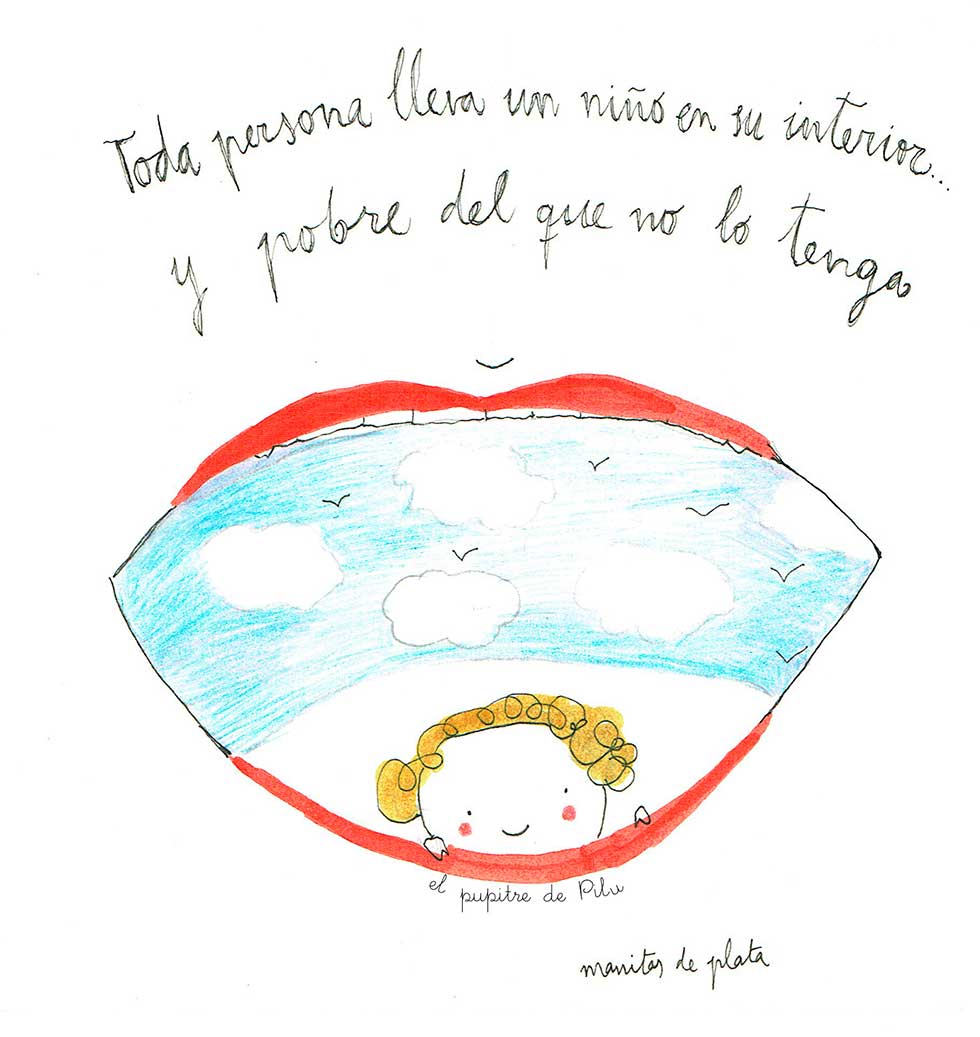 Toda persona lleva un niño en su interior...
y pobre del que no lo tenga
el pupitre de Pilu
manitas de plata